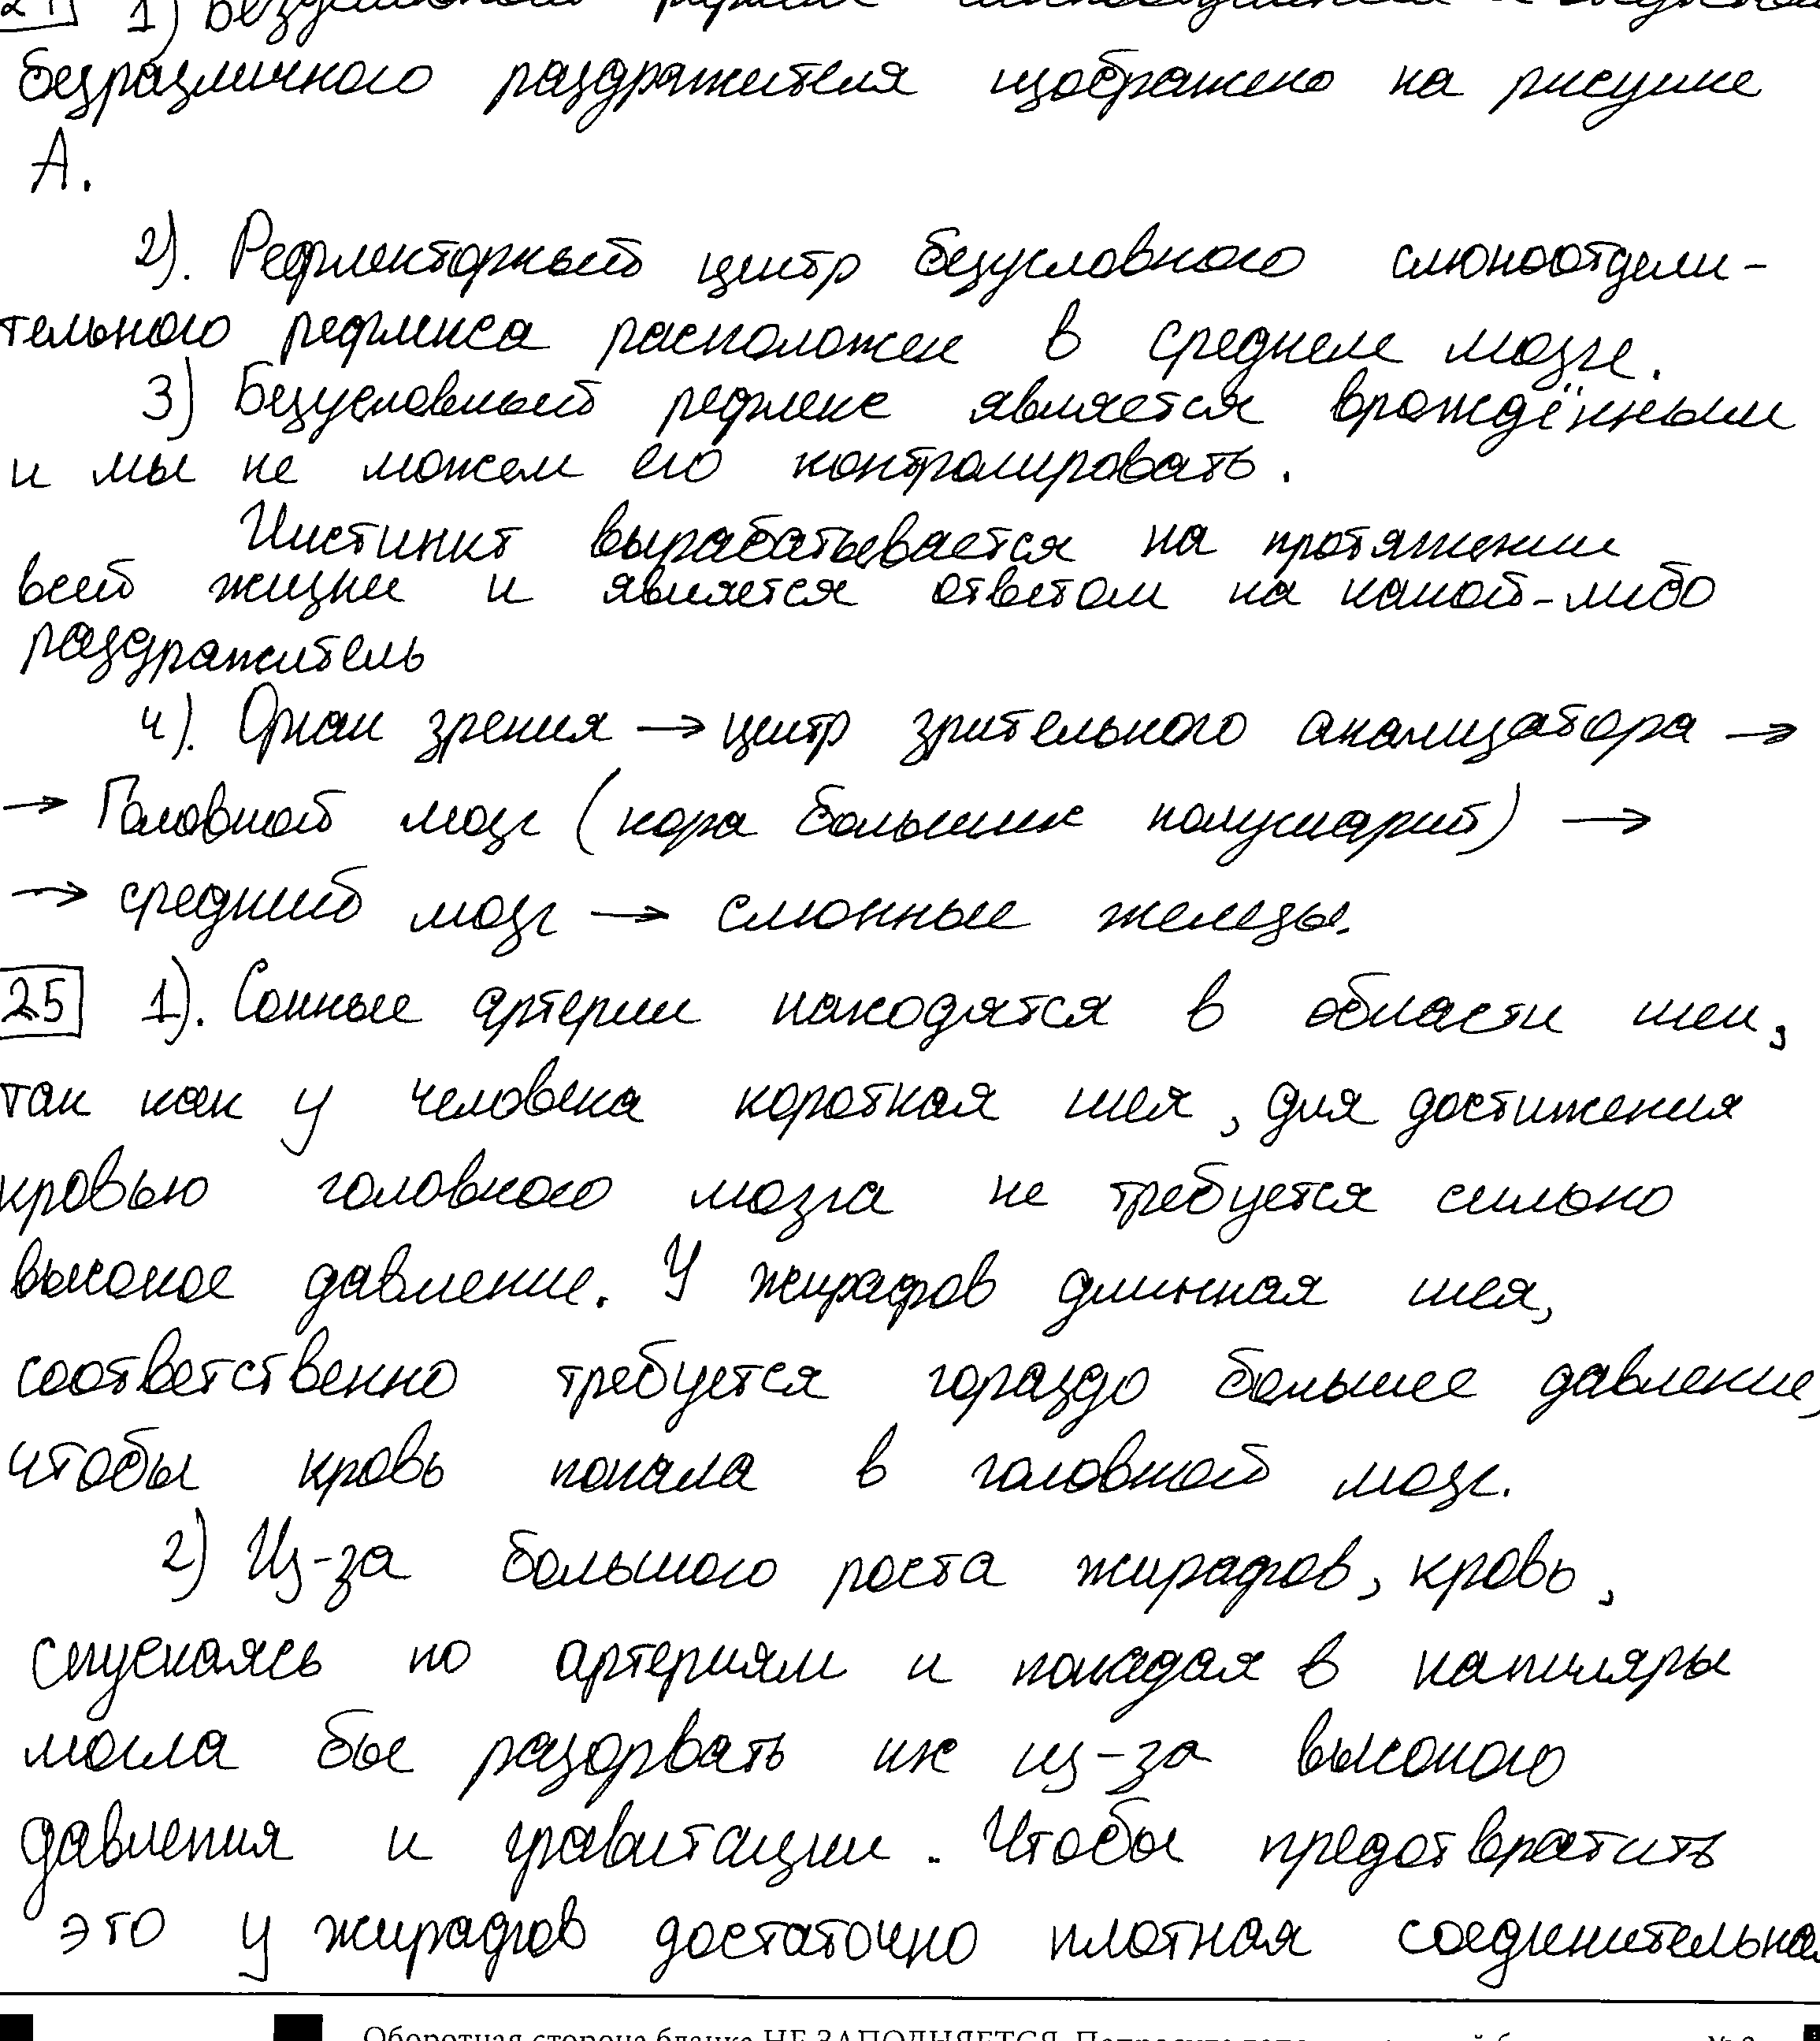 24 1) Безусловный рефлекс
безразличного раздражителя изображено на рисунке
А.
2). Рефлекторный центр безусловного слюноотдели-
тельного рефлекса расположен в среднем мозге.
3) Безусловный рефлекс является врождённым
и мы не можем его контролировать.
Инстинкт вырабатывается на протяжении
всей жизни и является ответом на какой-либо
раздражитель
4). Орган зрения → центр зрительного анализатора →
→ Головной мозг (кора больших полушарий) →
→ средний мозг → слюнные железы.
25 1). Сонные артерии находятся в области шеи,
так как у человека короткая шея, для достижения
кровью головного мозга не требуется сильно
высокое давление. У жирафов длинная шея,
соответственно требуется гораздо большее давление,
чтобы кровь попала в головной мозг.
2) Из-за большого роста жирафов, кровь,
спускаясь по артериям и попадая в капиляры
могла бы разорвать их из-за высокого
давления и гравитации. Чтобы предотвратить
это у жирафов достаточно плотная соединительная
Оборотная сторона бланка НЕ ЗАПОЛНЯЕТСЯ.